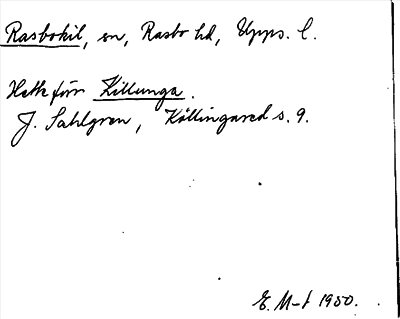 Rasbokil, sn, Rasbo hd, Upps. l.
Hette förr Killunga.
J. Sahlgren, Källingared s. 9.
E. M-t 1950.